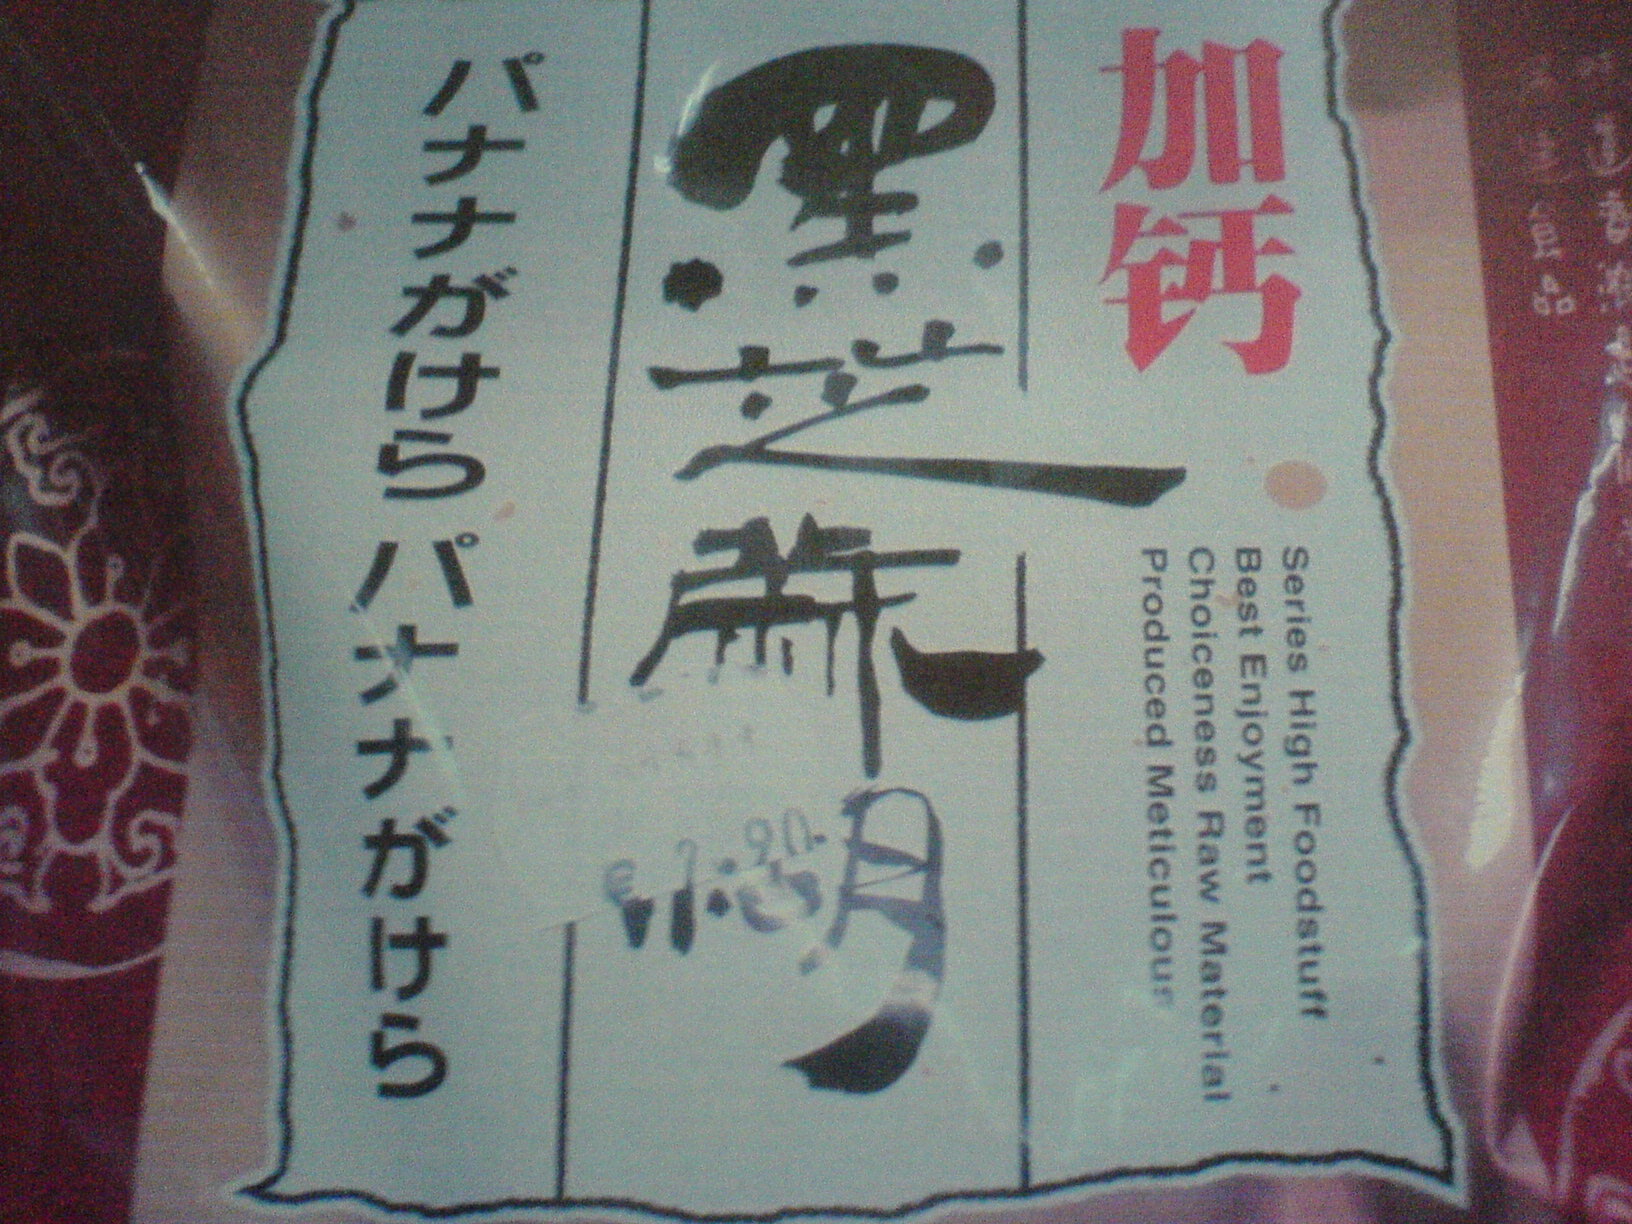 加钙
Series High Foodstuff
Best Enjoyment
Choiceness Raw Material
Produced Meticulour
黑芝麻
パナナがけらパナナがけら